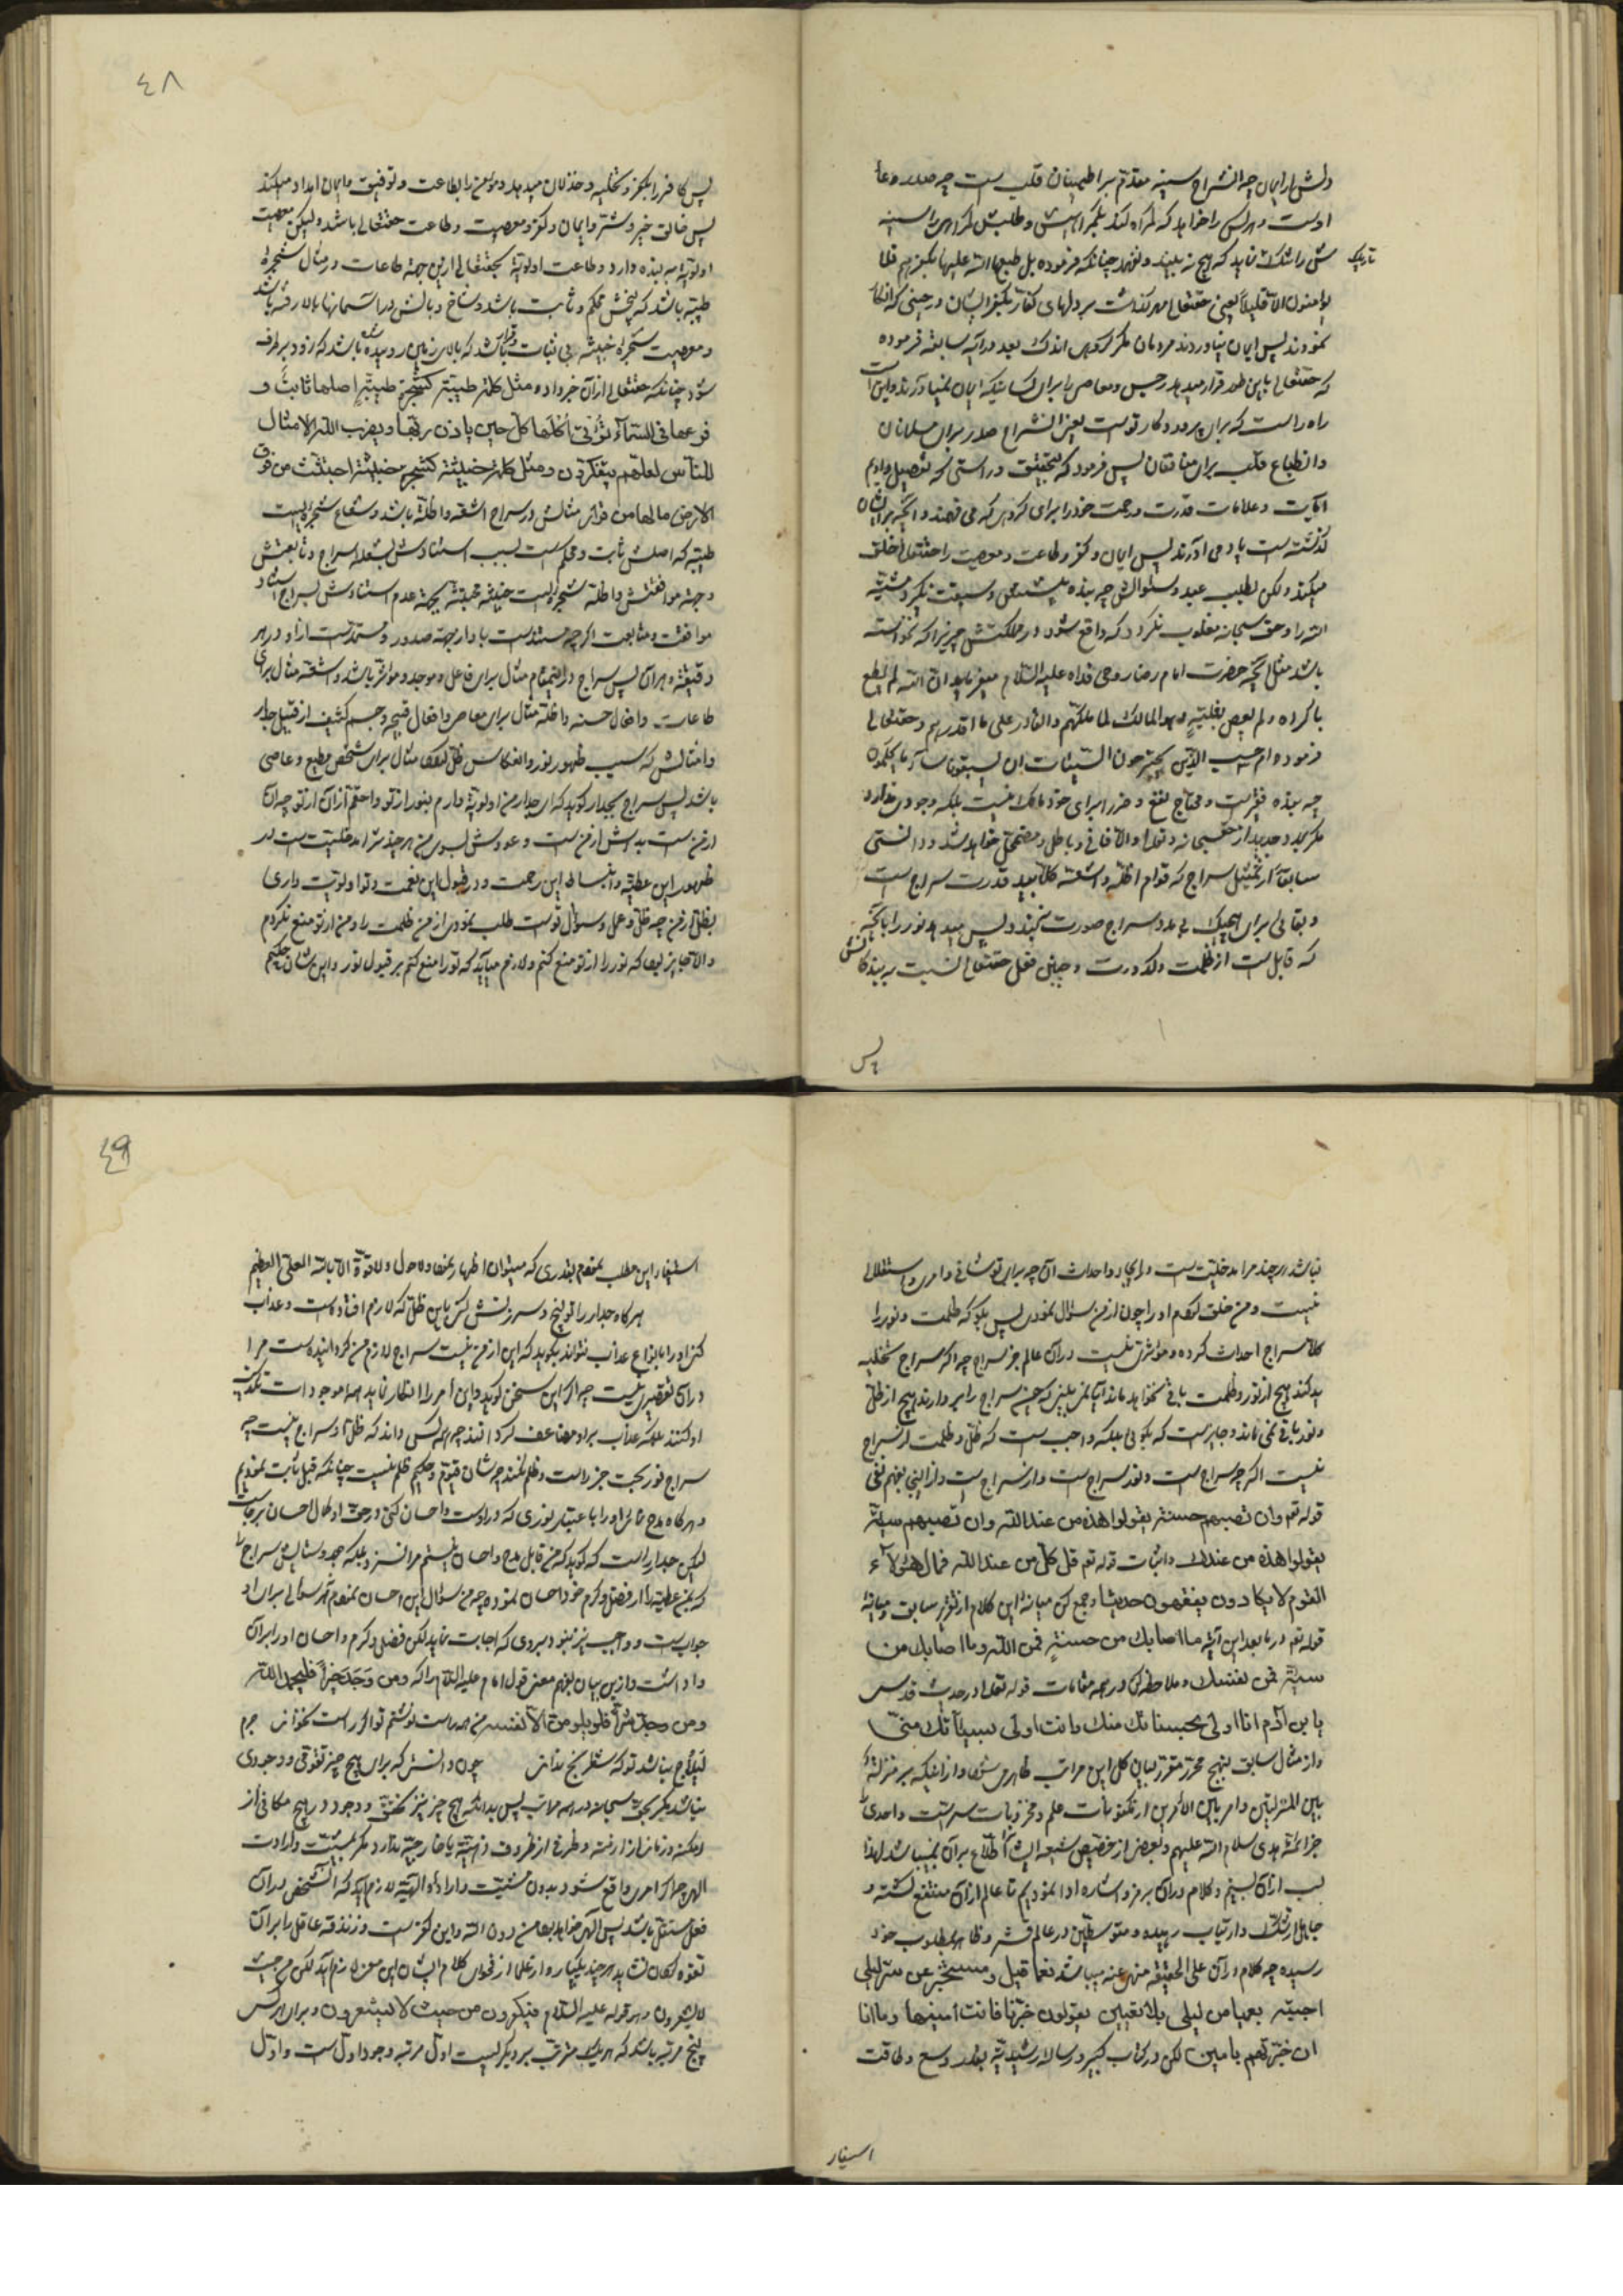 دلش را بایمان چه انشراح سینه مقدّم بر اطمینان قلب است چه صدر وعاء
اوست و هر کس را خواهد که گمراه کند بکفر
ش را تنگ نماید که هیچ نه بیند و نفهمد چنانکه فرموده بل طبع الله علیها بکفرهم فلا
تاریک
یؤمنون الا قلیلاً یعنی حقتعالی مهر گذاشت بر دلهای کفار بکفر ایشان در حینی که انکار
نمودند پس ایمان نیاوردند مردمان مگر گروهی اندک بعد در آیه سابقه فرموده
که حقتعالی باین طور قرار میدهد رجس و معاصی را برای کسانیکه ایمان نمیاورند و این است
راه راست که برای پروردگار توست یعنی انشراح صدر برای مسلمانان
و انطباع قلب برای منافقان پس فرمود که بتحقیق و راستی که تفصیل دادیم
آیات و علامات قدرت و رحمت خود را برای گروهی که می فهمند و آنچه بر ایشان
گذشته است یاد می آورند پس ایمان و کفر و طاعت و معصیت را حقتعالی خلق
میکند و لکن بطلب عبد و سؤالش چه بنده پیشی و سبقت نگیرد مشیّة
الله را و حق سبحانه مغلوب نگردد که واقع شود در مملکتش چیزیرا که نخواسته
باشد مثل آنچه حضرت امام رضا روحی فداه علیه السّلام میفرماید ان الله لم یطع
باکراه و لم یعص بغلبةٍ و هو المالک لما ملّکهم و القادر علی ما اقدرهم و حقتعالی
فرموده ام حسب الذین یجترحون السّیئات ان یسبقونا ساء ما یحکمون
چه بنده فقیر است و محتاج نفع و ضرر را برای خود مالک نیست بلکه وجودی ندارد
مگر بمدد جدید از حقسبحانه و تعالی و الا فانی و باطل و مضمحل خواهد شد و دانستی
سابقاً از تمثیل سراج که قوام اظلّه و اشعّه کلاً بید قدرت سراج است
و بقائی برای هیچیک بی مدد سراج صورت نبندد و پس میدهد نور را بآنچه
که قابل است از ظلمت و کدورت و چنین فعل حقتعالی نسبت به بندگانش
پس
٤٨
پس کافر را بکفر و تخلیه و خذلان میدهد و مؤمن را بطاعت و توفیق و ایمان امداد میکند
پس خالق خیر و شرّ و ایمان و کفر و معصیت و طاعت حقتعالی باشد و لیکن معصیت
اولویّة به بنده دارد و طاعت اولویّة بحقتعالی از این جهة طاعات در مثال شجرهٔ
طیّبه باشد که بیخش محکم و ثابت باشد و شاخ و بالش در آسمانها بالا رفته باشد
و معصیت شجرهٔ خبیثه بی ثبات و قرار باشد که بالای زمین روییده شده باشد که زود برطرف
شود چنانکه حقتعالی از آن خبر داده و مثل کلمة طیّبة کشجرة طیّبةٍ اصلها ثابتٌ و
فرعها فی السّماء تؤتی اُکلها کلّ حین باذن ربّها و یضرب الله الامثال
للنّاس لعلّهم یتفکرون و مثل کلمة خبیثة کشجرة خبیثة اجتثّت من فوق
الارض ما لها من قرار مثالش در سراج اشعّه و اظلّه باشد و شعاع شجره‌ایست
طیّبه که اصلش ثابت و محکم است بسبب استنادش بشعله سراج و تابعتش
و جهة موافقتش و اظلّه شجره‌ایست خبیثه مجتثّه بجهة عدم استنادش بسراج استناد
موافقت و متابعت اگر چه مستند است باو از جهة صدور و مستمد است از او در هر
دقیقه و هر آن پس سراج در این مقام مثال برای فاعل و موجد و مؤثّر باشد و اشعّه مثال برای
طاعات و افعال حسنه و اظلّه مثال برای معاصی و افعال قبیحه و جسم کثیف از قبیل جدار
و امثالش که سبب ظهور نور و انعکاس ظلّ مثال برای شخص مطیع و عاصی
باشد پس سراج بجدار گوید که ای جدار من اولویّة دارم بنور از تو و احقّم از آن از تو چه آن
از من است بدئش از من است و عودش بسوی من هر چند ترا مدخلیّت است در
ظهور این عطیّه و انبساط این رحمت و در قبول این نعمت و تو اولویّت داری
بظلّ از من چه ظلّ و عمل و سؤال تو است طلب نمودی از من ظلمت را و من از تو منع نکردم
و الا جایز بود که نور را از تو منع کنم و لازم میآید که تو را منع کنم بر قبول نور و این شان حکیم
نباشد هر چند مرا مدخلیّت است در ایجاد و احداث آن چه برای تو شانی و امری و استقلالی
نیست و من خلق کردم او را چون از من سؤال نمودی پس بگو که ظلمت و نور را
کلاً سراج احداث کرده و مؤثری نیست در آن عالم جز سراج چه اگر سراج تخلیه
ید کند هیچ از نور و ظلمت باقی نخواهد ماند آیا نمی بینی که چون سراج را بردارند هیچ از ظلّ
و نور باقی نمی ماند و جایز است که بگوئی بلکه واجب است که ظلّ و ظلمت از سراج
نیست اگر چه بسراج است و نور بسراج است و از سراج است و از اینجا بفهم نفی
قوله تعم و ان تصبهم حسنة یقولوا هذه من عند الله و ان تصبهم سیّئة
یقولوا هذه من عندک و اثبات قوله تعم قل کلّ من عند الله فمال هؤلاء
القوم لا یکادون یفقهون حدیثا و جمع کن میانهٔ این کلام از تقریر سابق و میانهٔ
قوله تعم در ما بعد این آیه ما اصابک من حسنةٍ فمن الله و ما اصابک من
سیّئة فمن نفسک و ملاحظه کن در همه مقامات قوله تعالی در حدیث قدسی
یا بن آدم انا اولی بحسناتک منک و انت اولی بسیّئاتک منّی
و از مثال سابق بنهج محرّر مقرّر بیان کل این مراتب ظاهر میشود و از اینکه سر منزلة
بین المنزلتین و امر بین الامرین از مکنونات علم و مخزونات سرّ است و احدی
جز ائمّهٔ هدی سلام الله علیهم و بعضی از خصّیصین شیعه ایشان اطّلاع بر آن نمیباشد لهذا
لب از آن بستیم و کلام در آن برمز و اشاره ادا نمودیم تا عالم از آن منتفع گشته و
جاهل از شکّ و ارتیاب رهیده و متوسّطین در عالم قشر و ظاهر بمطلوب خود
رسیده چه کلام در آن علی الحقیقه منهی عنه میباشد نعما قیل و مستخبر عن سرّ لیلی
اجبته بعمیا من لیلی بلا تعیین یقولون خبّرنا فانت امینها و ما انا
ان خبّرتهم بامین لکن در کتاب کبیر و رساله رشیدیّه بقدر وسع و طاقت
استیفار
٤٩
استیفاء این مطلب نمودم بقدری که میتوان اظهار نمود و لا حول و لا قوّة الا بالله العلیّ العظیم
هر گاه جدار را توبیخ و سرزنش کنی باین ظلّ که لازم افتاده است و عذاب
کنی او را بانواع عذاب نتواند بگوید که این از من نیست سراج لازم من گردانیده است مرا
در آن تقصیری نیست چه اگر این سخن گوید و این امر را انکار نماید همه موجودات تکذیب
او کنند بلکه عذاب بر او مضاعف گردانند چه همه کس داند که ظلّ از سراج نیست چه
سراج نور بحت جز راست و ظلم نکند چه شان قیّوم و حکیم ظلم نیست چنانکه قبل ثابت نمودیم
و هر گاه مدح نمائی او را باعتبار نوری که در اوست و احسان کنی در حق او کمال احسان بر جاست
لیکن جدار راست که گوید که من قابل مدح و احسان نیستم مرا نسزد بلکه حمد و ستایش سراج را
که بمن عطیّه را از فضل و کرم خود احسان نموده چه من سؤال این احسان نمودم هر سؤالی برای او
جوابست و واجب نیز نبود بر وی که اجابت نماید لکن فضل و کرم و احسان او را بر آن
واداشت و از این بیان بفهم معنی قول امام علیه السّلام را که و من وَجَدَ خیراً فلیحمد الله
و من وجد شرّاً فلا یلومنّ الا نفسه من راست نوشتم تو اگر راست نخوانی جرم
لیلاج نباشد تو که شطرنج ندانی چون دانستی که برای هیچ چیز تحقق و وجودی
نباشد مگر بحق سبحانه در همه مراتب پس بدانکه هیچ چیز نیز تحقق و وجود در هیچ مکانی از
امکنه و زمانی از ازمنه و ظرفی از ظروف ذهنیّه یا خارجیّه ندارد مگر بمشیّت و ارادت
الهی چه اگر امری واقع شود بدون مشیّت و ارادهٔ الهیّه لازم آید که آن شخص در آن
فعل مستقل باشد پس الهی خواهد بود من دون الله و این کفر است و زندقه عاقل را بر آن
تفوّه امکان نشاید هر چند بسیاری از علما از فحوای کلام ایشان این معنی لازم آید لکن من حیث
لا یشعرون و هو قوله علیه السّلام فینکرون من حیث لا یشعرون و برای هر کس
پنج مرتبه باشد که هر یک مترتّب بر دیگریست اول مرتبهٔ وجود اول است و اول